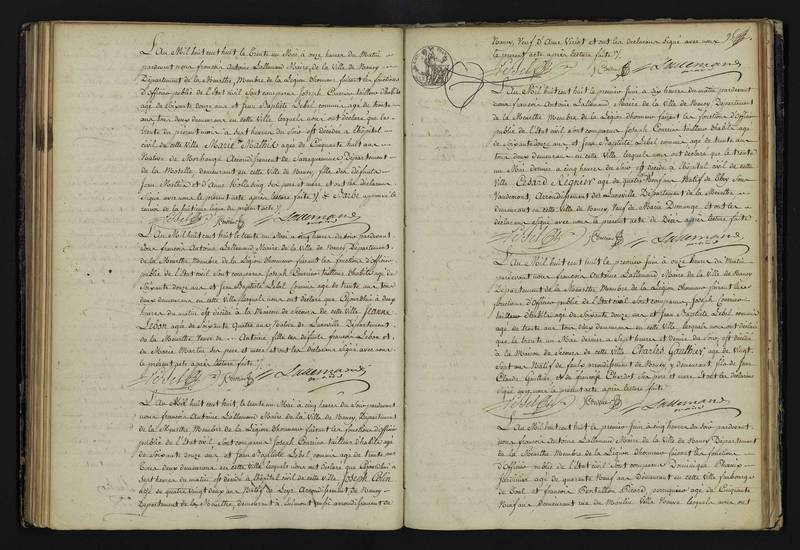 L'An Mil huit cent huit le trente un Mai à onze heures du Matin
nous françois Antoine Lallemand Maire de la Ville de Nancy
Département de la Meurthe, Membre de la Légion d'honneur faisant les fonctions
d'Officier public de l'Etat civil sont comparus Joseph Cursier tailleur d'habits
agé de Soixante douze ans et Jean Baptiste Lebel commis agé de trente
un ans tous deux demeurans en cette Ville, lesquels nous ont déclaré que le
trente du présent mois à sept heures du soir est décédée à l'hôpital
civil de cette Ville Marie agée de Cinquante huit ans
Native de Morhange Arrondissement de Sarreguemines Département
de la Moselle, demeurant en cette Ville, fille des défunts
Jean et d'Anne ses père et mère et ont les déclarans
Signé avec nous le présent acte après lecture faite
Lallemand
L'An Mil huit cent huit le trente un Mai à cinq heures du soir pardevant
nous françois Antoine Lallemand Maire de la Ville de Nancy Département
de la Meurthe Membre de la Légion d'honneur faisant les fonctions d'officier
public de l'Etat civil sont comparus Joseph Cursier tailleur d'habits agé de
Soixante douze ans et Jean Baptiste Lebel Commis agé de trente un ans tous
deux demeurans en cette Ville lesquels nous ont déclaré que Cejourd'hui à deux
heures du matin est décédée à la Maison de Secours de cette Ville Jeanne
Lebon agée de Soixante Quatre ans Native de Luneville Département
de la Meurthe Veuve de Antoine, fille des défunts françois Lebon et
de Marie Martin ses père et mère et ont les déclarans signé avec nous
le présent acte après lecture faite
Lallemand
L'An Mil huit cent huit, le trente un Mai à cinq heures du Soir pardevant
nous françois Antoine Lallemand Maire de la Ville de Nancy, Département
de la Meurthe, Membre de la Légion d'honneur faisant les fonctions d'officier
public de l'Etat civil, sont comparus Joseph Cursier tailleur d'habits agé
de Soixante douze ans et Jean Baptiste Lebel, commis agé de trente un ans
tous deux demeurans en cette Ville lesquels nous ont déclaré que Cejourd'hui à
sept heures du matin est décédé à l'hôpital civil de cette Ville, Joseph Colin
agé de quatre vingt deux ans Natif de Arrondissement de Nancy
Département de la Meurthe, demeurant à arrondissement de
Nancy, Veuf d'Anne Violet et ont les déclarans signé avec nous
le présent acte après lecture faite
Lallemand
L'An Mil huit cent huit le premier Juin à dix heures du matin pardevant
nous françois Antoine Lallemand, Maire de la Ville de Nancy Département
de la Meurthe Membre de la Légion d'honneur faisant les fonctions d'officier
public de l'Etat civil sont comparus Joseph Cursier tailleur d'habits agé
de Soixante douze ans et Jean Baptiste Lebel commis agé de trente un ans
tous deux demeurans en cette Ville lesquels nous ont déclaré que le trente
un Mai dernier à cinq heures du soir est décédé à l'hôpital civil de cette
Ville Cesard Régnier agé de quatre Natif de
Vaudemont, Arrondissement de Luneville Département de la Meurthe
demeurant en cette Ville de Nancy Veuf de Marie Dimange et ont les
déclarans signé avec nous le présent acte de Décès après lecture faite
Lallemand
L'An Mil huit cent huit le premier juin à onze heures du Matin
pardevant nous françois Antoine Lallemand Maire de la Ville de Nancy
Département de la Meurthe Membre de la Légion d'honneur faisant les
fonctions d'officier public de l'Etat civil sont comparus Joseph Cursier
tailleur d'habits agé de Soixante douze ans, et Jean Baptiste Lebel commis
agé de trente un ans tous deux demeurans en cette Ville, lesquels nous ont déclaré
que le trente un Mai dernier à sept heures et demie du soir, est décédé
à la Maison de Secours de cette Ville Charles Gauthier agé de Vingt
Sept ans Natif de arrondissement de Nancy y demeurant, fils de
Claude Gauthier et de françoise ses père et mère et ont les déclarans
Signé avec nous le présent acte après lecture faite
Lallemand
L'An Mil huit cent huit le premier juin à cinq heures du soir pardevant
nous françois Antoine Lallemand Maire de la Ville de Nancy Département
de la Meurthe, Membre de la Légion d'honneur faisant les fonctions
d'Officier public de l'Etat civil sont comparus Dominique
Jardinier agé de quarante Neuf ans Demeurant en cette Ville faubourg
de Toul et françois perruquier agé de Cinquante
Neuf ans Demeurant rue du Moulin Ville Neuve lesquels nous ont